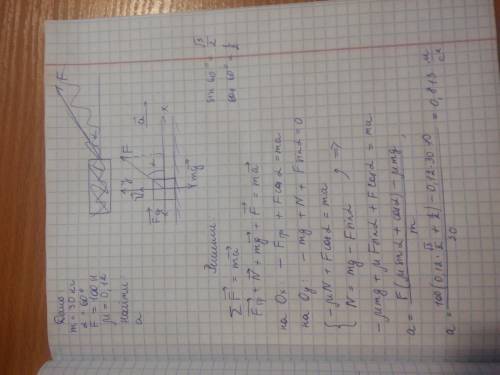 Дано
m = 30 кг
α = 60°
F = 100 Н
μ = 0,12
Найти
a
F
α
y
N
F
a
x
Fтр
mg
Решение.
ΣF = ma
sin 60° = √3/2
cos 60° = 1/2
Fтр + N + mg + F = ma
на Ox - Fтр + F cos α = ma
на Oy - mg + N + F sin α = 0
{ - μN + F cos α = ma
N = mg - F sin α , ⇒
- μmg + μF sin α + F cos α = ma
a = F(μ sin α + cos α) - μmg / m ,
a = 100(0,12 · √3/2 + 1/2) - 0,12 · 30 · 10 / 30 = 0,813 м/с²